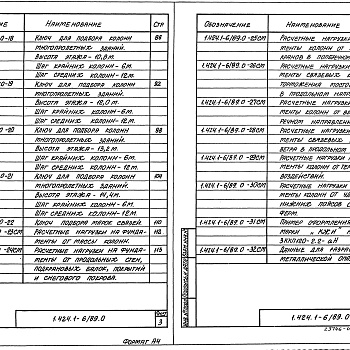 НИЕ
НАИМЕНОВАНИЕ
СТР
0-18
КЛЮЧ ДЛЯ ПОДБОРА КОЛОНН
86
МНОГОПРОЛЕТНЫХ ЗДАНИЙ.
ВЫСОТА ЭТАЖА - 10,8 М.
ШАГ КРАЙНИХ КОЛОНН - 6 М.
ШАГ СРЕДНИХ КОЛОНН - 12 М.
0-19
КЛЮЧ ДЛЯ ПОДБОРА КОЛОНН
92
МНОГОПРОЛЕТНЫХ ЗДАНИЙ.
ВЫСОТА ЭТАЖА - 12,0 М.
ШАГ КРАЙНИХ КОЛОНН - 6 М.
ШАГ СРЕДНИХ КОЛОНН - 12 М.
0-20
КЛЮЧ ДЛЯ ПОДБОРА КОЛОНН
98
МНОГОПРОЛЕТНЫХ ЗДАНИЙ.
ВЫСОТА ЭТАЖА - 13,2 М.
ШАГ КРАЙНИХ КОЛОНН - 6 М.
ШАГ СРЕДНИХ КОЛОНН - 12 М.
0-21
КЛЮЧ ДЛЯ ПОДБОРА КОЛОНН
104
МНОГОПРОЛЕТНЫХ ЗДАНИЙ.
ВЫСОТА ЭТАЖА - 14,4 М.
ШАГ КРАЙНИХ КОЛОНН - 6 М.
ШАГ СРЕДНИХ КОЛОНН - 12 М.
0-22
КЛЮЧ ПОДБОРА МАРОК СВЯЗЕЙ.
110
0-23СМ
РАСЧЕТНЫЕ НАГРУЗКИ НА ФУНДА-
112
МЕНТЫ ОТ МАССЫ КОЛОНН.
0-24СМ
РАСЧЕТНЫЕ НАГРУЗКИ НА ФУНДА-
113
МЕНТЫ ОТ ПРОДОЛЬНЫХ СТЕН,
ПОДКРАНОВЫХ БАЛОК, ПОКРЫТИЙ
И СНЕГОВОГО ПОКРОВА.
1.424.1-6/89.0
ЛИСТ
3
ФОРМАТ А4
ОБОЗНАЧЕНИЕ
НАИМЕНОВ
1.424.1-6/89.0-25СМ
РАСЧЕТНЫЕ НАГРУЗКИ
МЕНТЫ КОЛОНН ОТ
КРАНОВ В ПОПЕРЕЧНОМ
1.424.1-6/89.0-26СМ
РАСЧЕТНЫЕ НАГРУЗКИ
МЕНТЫ СВЯЗЕВЫХ К
ТОРМОЖЕНИЯ МОСТОВ
В ПРОДОЛЬНОМ НАПР
1.424.1-6/89.0-27СМ
РАСЧЕТНЫЕ НАГРУЗКИ
МЕНТЫ КОЛОНН ОТ В
РЕЧНОМ НАПРАВЛЕНИИ
1.424.1-6/89.0-28СМ
РАСЧЕТНЫЕ НАГРУЗКИ
МЕНТЫ СВЯЗЕВЫХ
ВЕТРА В ПРОДОЛЬНОМ
1.424.1-6/89.0-29СМ
РАСЧЕТНЫЕ НАГРУЗКИ
МЕНТЫ КОЛОНН ОТ ТЕМ
ВОЗДЕЙСТВИЙ.
1.424.1-6/89.0-30СМ
РАСЧЕТНЫЕ НАГРУЗКИ
МЕНТЫ КОЛОНН ОТ
НИЖНИХ ПОЯСОВ С
ФЕРМ.
1.424.1-6/89.0-31СМ
ПРИМЕР ОФОРМЛЕНИЯ
МАРКИ "КЖИ"
1.424.1-6/89.0-32СМ
ДАННЫЕ ДЛЯ РАЗРА
МЕТАЛЛИЧЕСКОЙ ОПА
1.424.1-6/89.0